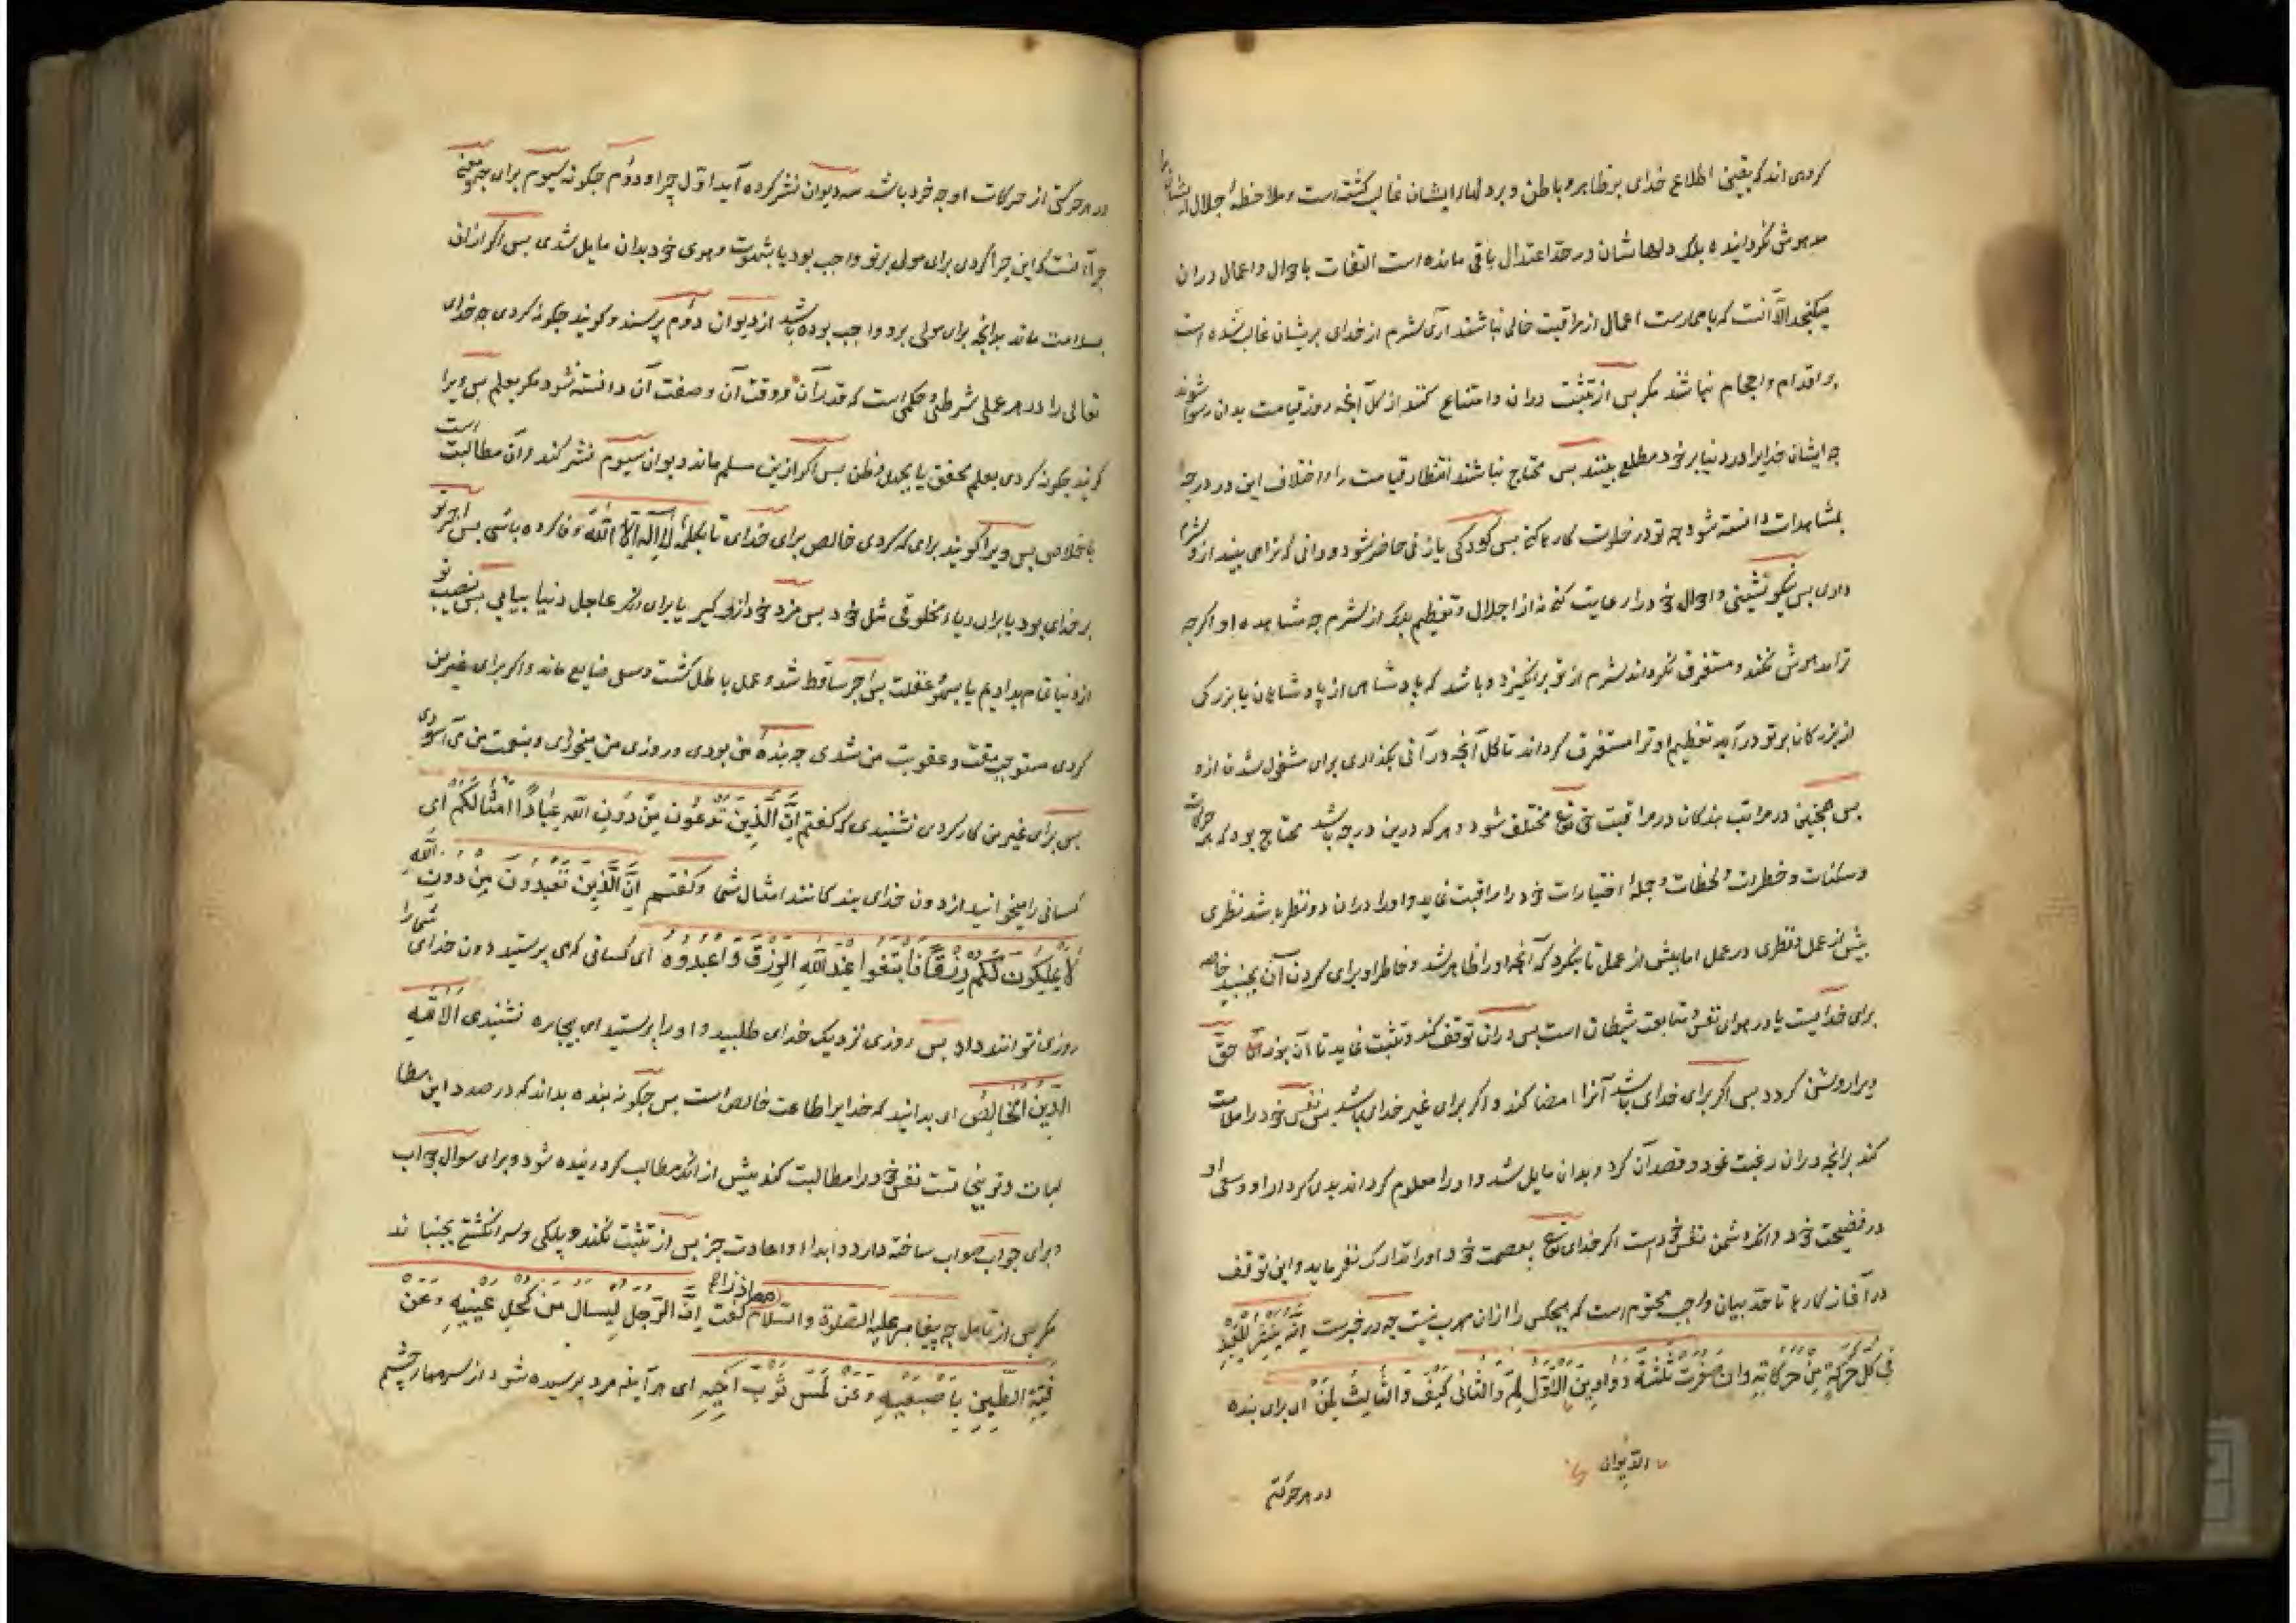 کروهی اند که یقین اطلاع خدای بر ظاهر و باطن و بر دلهاء ایشان غالب کشته است و ملاحظهٔ جلال ایشانرا
مدهوش نکردانیده بلک دلهاشان در حدّ اعتدال باقی مانده است التفات باحوال و اعمال دران
میکنجد الّا آنست که با ممارست اعمال از مراقبت خالی نباشند آری شرم از خدای بریشان غالب شده است
بر اقدام و احجام نباشند مکر پس از تثبت دران و امتناع کنند از کل آنچه روز قیامت بدان رسوا شوند
چه ایشان خدایرا در دنیا بر خود مطلع بینند پس محتاج نباشند انتظار قیامت را و اختلاف این دو درجه
بمشاهدات دانسته شود چه تو در خلوت کارها کنی پس کودکی یا زنی حاضر شود و دانی که ترا می بیند ازو شرم
داری پس نیکو نشینی و احوال خود را رعایت کنی نه از اجلال و تعظیم بلک از شرم چه مشاهده او اکرچه
ترا مدهوش نکند و مستغرق نکرداند شرم از تو برانکیزد و باشد که پادشاهی از پادشاهان یا بزرکی
از بزرکان بر تو درآید تعظیم او ترا مستغرق کرداند تا کل آنچه درآنی بکذاری برای مشغول شدن ازو
پس همچنین در مراتب بندکان در مراقبت حق تع مختلف شود و هر که درین درجه باشد محتاج بود که همه حرکات
و سکنات و خطرات و لحظات و جملهٔ اختیارات خود را مراقبت نماید و او را دران دو نظر باشد نظری
پیش از عمل و نظری در عمل اما پیش از عمل تا بنکرد که آنچه او را ظاهر شد و خاطر او برای کردن آن بجنبید خاصه
برای خدایست یا در هوای نفس و متابعت شیطان است پس دران توقف کند و تثبت نماید تا آن بنور حق
ویرا روشن کردد پس اکر برای خدای باشد آنرا امضا کند و اکر برای غیر خدای باشد پس نفس خود را ملامت
کند برانچه دران رغبت نمود و قصد آن کرد و بدان مایل شد و او را معلوم کرداند بدی کردار او و سعی او
در فضیحت خود و انکه دشمن نفس خود است اکر خدای تع بعصمت خود او را تدارک نفرماید و این توقف
در آغاز کارها تا حدّ بیان واجب محتوم است که هیچکس را ازان مهرب نیست چه در خبرست اِنّهُ یُنشَرُ لِلعَبدِ
فی کُلِّ حَرَکَةٍ مِن حَرَکاتِهِ وَاِن صَغُرَت ثَلثَةُ دَوَاوِینَ اَلاَوّلُ لِمَ وَالثّانی کَیفَ وَالثّالِثُ لِمَن ای برای بنده
الدّیوان
در هر حرکتی
در هر حرکتی از حرکات او چه خرد باشد سه دیوان نشر کرده آید اوّل چرا و دوّم چکونه سیوم برای چه معنی
چرا آنست که این چرا کردی برای مولی بر تو واجب بود یا بشهوت و هوی خود بدان مایل شدی پس اکر ازان
بسلامت ماند بدانچه برای مولی برو واجب بوده باشد از دیوان دوّم پرسند و کویند چکونه کردی چه خدای
تعالی را در هر عملی شرطی و حکمی است که قدر آن و وقت آن و صفت آن دانسته نشود مکر بعلم پس ویرا
کویند چکونه کردی بعلم محقق یا بجهل و ظن پس اکر ازین مسلم ماند دیوان سیوم نشر کند و آن مطالبت است
باخلاص پس ویرا کویند برای که کردی خالص برای خدای تا بکلمهٔ لَا اِلٰهَ اِلّا اللهُ وفا کرده باشی پس اجر تو
بر خدای بود یا برای ریاء مخلوقی مثل خود پس مزد خود ازو کیر یا برای عاجل دنیا بیابی پس نصیب تو
از دنیا تمام بدادیم یا بسهو و غفلت پس اجر ساقط شد و عمل باطل کشت و سعی ضایع ماند و اکر برای غیر من
کردی مستوجب مقت و عقوبت من شدی چه بندهٔ من بودی و روزی من میخوری و بنعمت من می آسودی
پس برای غیر من کار کردی نشنیدی که کفتم اِنَّ الَّذِینَ تَدعُونَ مِن دُونِ اللهِ عِبَادٌ اَمثَالُکُم ای
کسانی را میخوانید از دون خدای بندکانند امثال شما و کفتم اِنَّ الَّذِینَ تَعبُدُونَ مِن دُونِ اللهِ
لَا یَملِکُونَ لَکُم رِزقًا فَابتَغُوا عِندَ اللهِ الرِّزقَ وَاعبُدُوهُ ای کسانی که می پرستید دون خدای شما را
روزی نتوانند داد پس روزی نزدیک خدای طلبید و او را پرستید ای بیچاره نشنیدی اَلَا لِلّٰهِ
الدِّینُ الخَالِصُ ای بدانید که خدایرا طاعت خالص است پس چکونه بنده بداند که در صدد این مطا
لبات و توبیخات است نفس خود را مطالبت کند پیش از انکه مطالب کردانیده شود و برای سوال جواب
و برای جواب صواب ساخته دارد و ابداء و اعادت جز پس از تثبت نکند و پلکی و سر انکشتی بجنباند
مکر پس از تامل چه پیغامبر علیه الصلوة والسلام معاذ را کفت اِنَّ الرَّجُلَ لَیُسأَلُ عَن کُحلِ عَینَیهِ وَعَن
فَتِّهِ الطِّینَ بِاَصبَعَیهِ وَعَن لَمسِ ثَوبِ اَخِیهِ ای هر آینه مرد پرسیده شود از سرمهٔ چشم